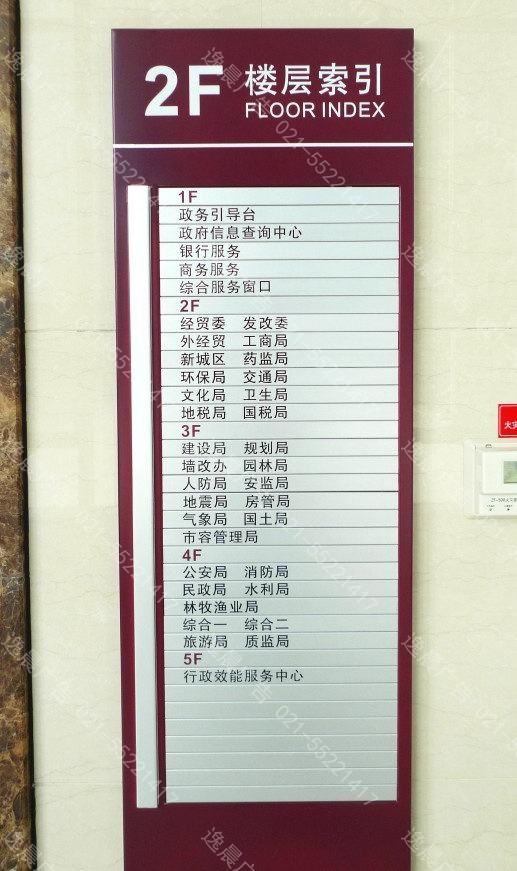 2F 楼层索引
FLOOR INDEX
1F
政务引导台
政府信息查询中心
银行服务
商务服务
综合服务窗口
2F
经贸委 发改委
外经贸 工商局
新城区 药监局
环保局 交通局
文化局 卫生局
地税局 国税局
3F
建设局 规划局
墙改办 园林局
人防局 安监局
地震局 房管局
气象局 国土局
市容管理局
4F
公安局 消防局
民政局 水利局
林牧渔业局
综合一 综合二
旅游局 质监局
5F
行政效能服务中心
火灾
逸晨广告 021-55221417